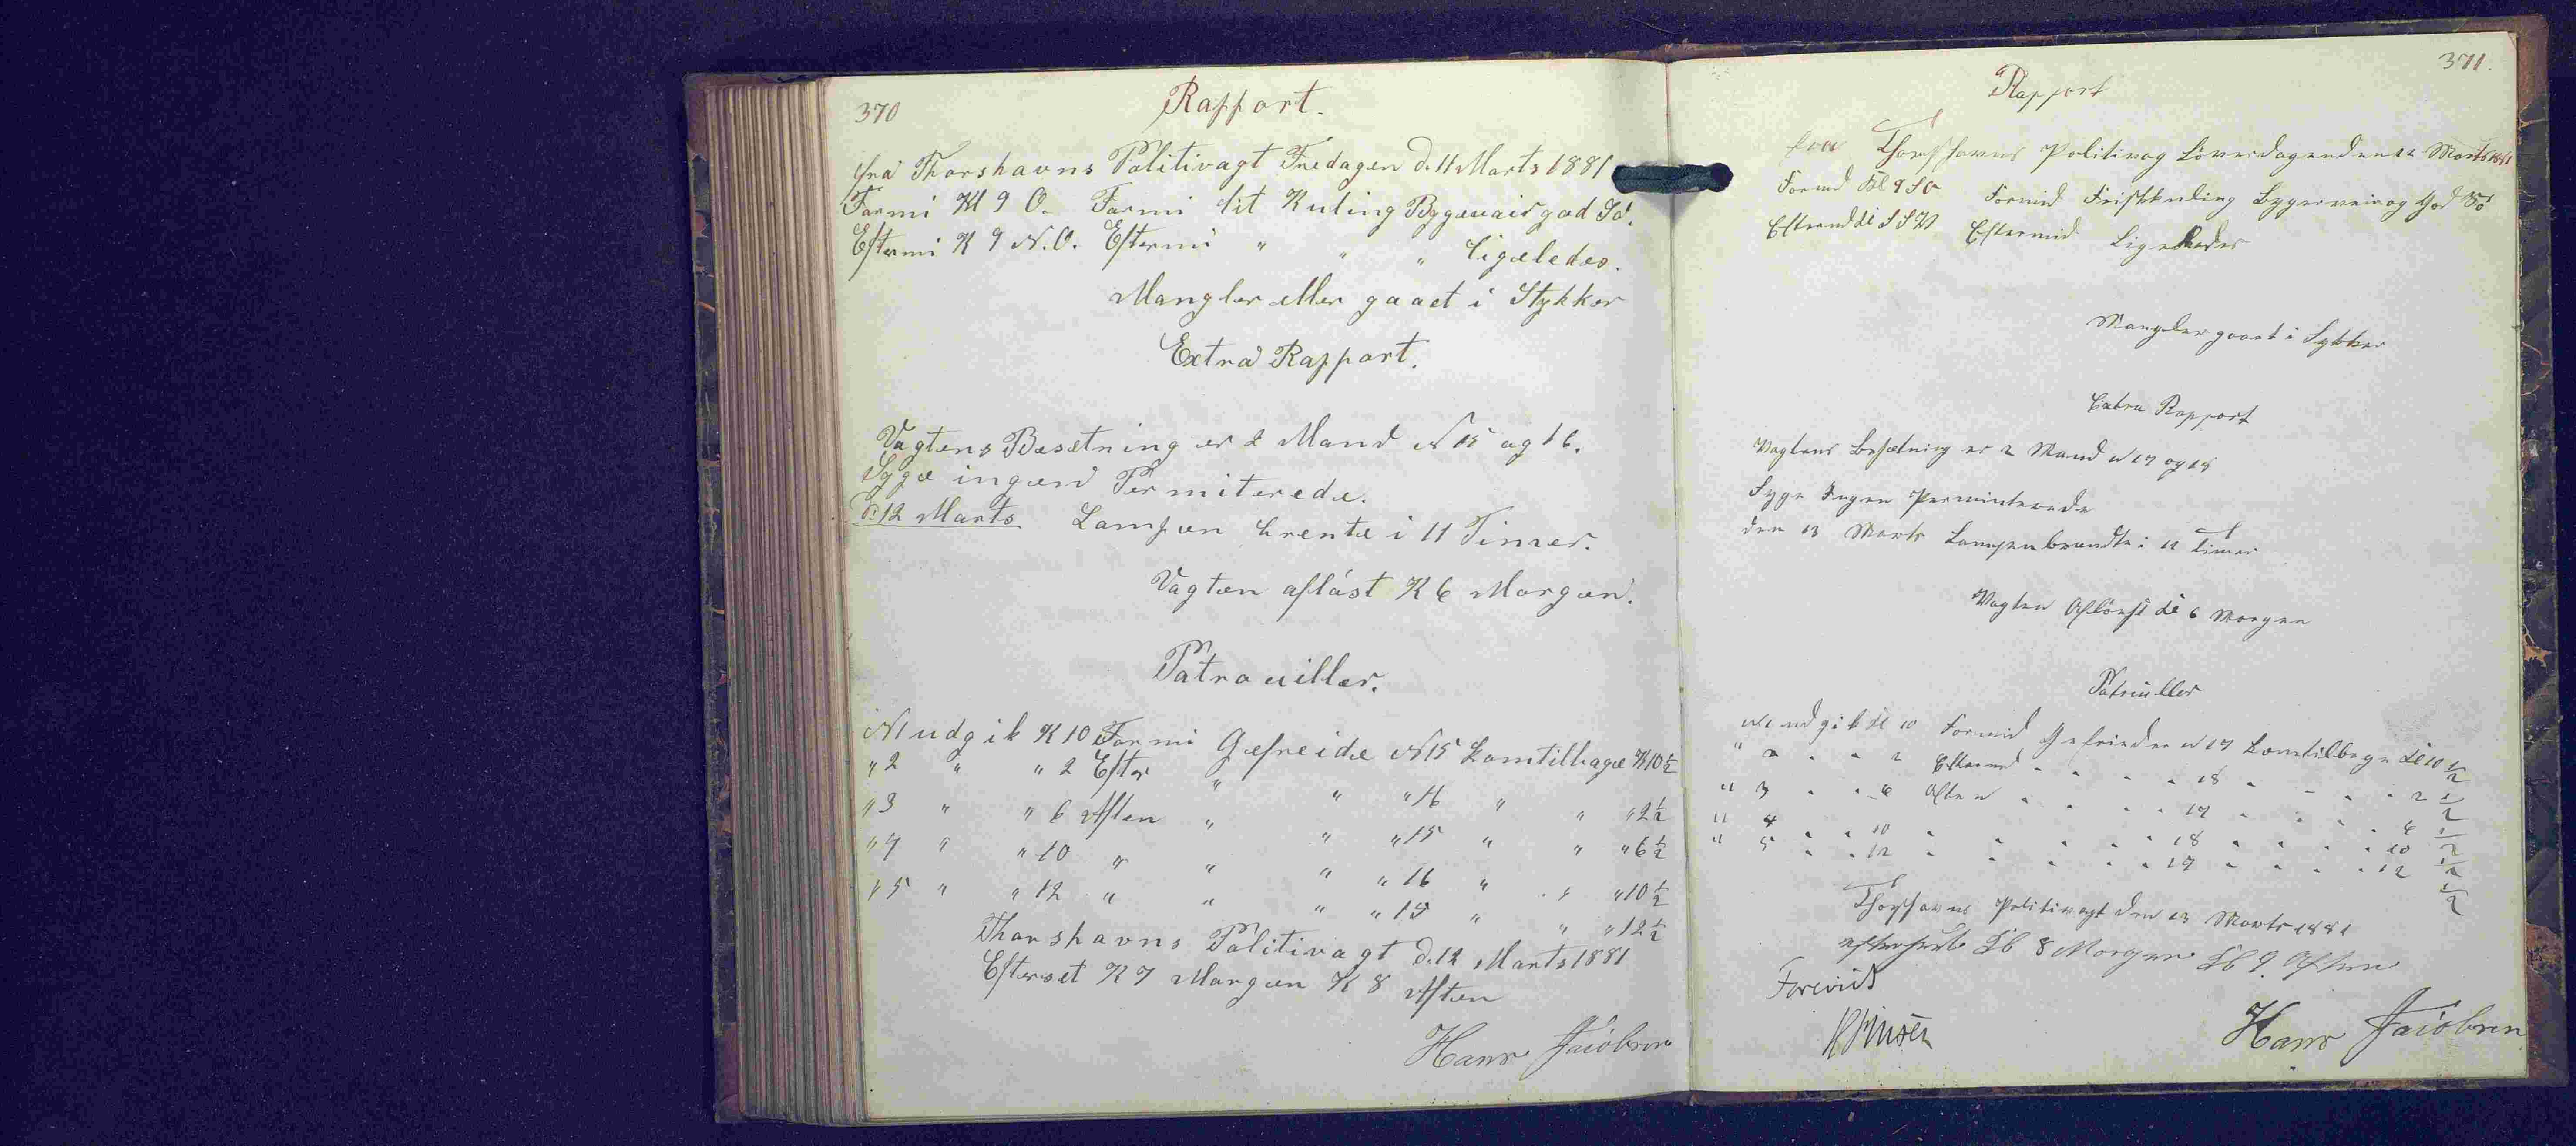 370
Rapport.
fra Thorshavns Politivagt Fredagen d. 11 Marts 1881
Formi Kl 9 O. Formi lit Kuling Bygeveir god Sö.
Eftermi K 9 N.O. Eftermi " " " Ligeledes.
Mangler eller gaaet i Stykker
Extra Rapport.
Vagtens Besetning er 2 Mand N 15 og 16.
Syge ingen Permiterede.
d. 12 Marts Lampen brente i 11 Timer.
Vagten aflöst K 6 Morgen.
Patrouiller.
N1 udgik K 10 Formi Gefreide N 15 komtilbage K 10 1/2
" 2 " " 2 Efter " " " 16 " " " 2 1/2
" 3 " " 6 Aften " " " 15 " " " 6 1/2
" 4 " " 10 " " " " 16 " " " 10 1/2
" 5 " " 12 " " " " 15 " " " 12 1/2
Thorshavns Politivagt d. 12 Marts 1881
Efterset K 7 Morgen K 8 Aften
Hans Jacobsen
371
Rapport
fra Thorshavns Politivag Löverdagen den 12 Marts 1881
Formd Kl 9 SO Formid Friskkuling Bygerveir og God Sö
Eftermd Kl SSW Eftermid Ligeledes
Mangler gaaet i Sykker
Extra Rapport
Vagtens Besætning er 2 Mand N 17 og 18
Syge Ingen Perminterede
den 13 Marts Lampen brændte i 11 Timer
Vagten Aflöst Kl 6 Morgen
Patruller
N1 udgik Kl 10 Formid Gefrieder N 17 komtilbage Kl 10 1/2
" 2 " " 2 Eftermd " " " 18 " " " 2 1/2
" 3 " " 6 Aften " " " 17 " " " 6 1/2
" 4 " " 10 " " " " 18 " " " 10 1/2
" 5 " " 12 " " " " 17 " " " 12 1/2
Thorshavns Politivagt den 13 Marts 1881
efterset Kl 8 Morgen Kl 9 Aften
Forevist
Hans Jacobsen